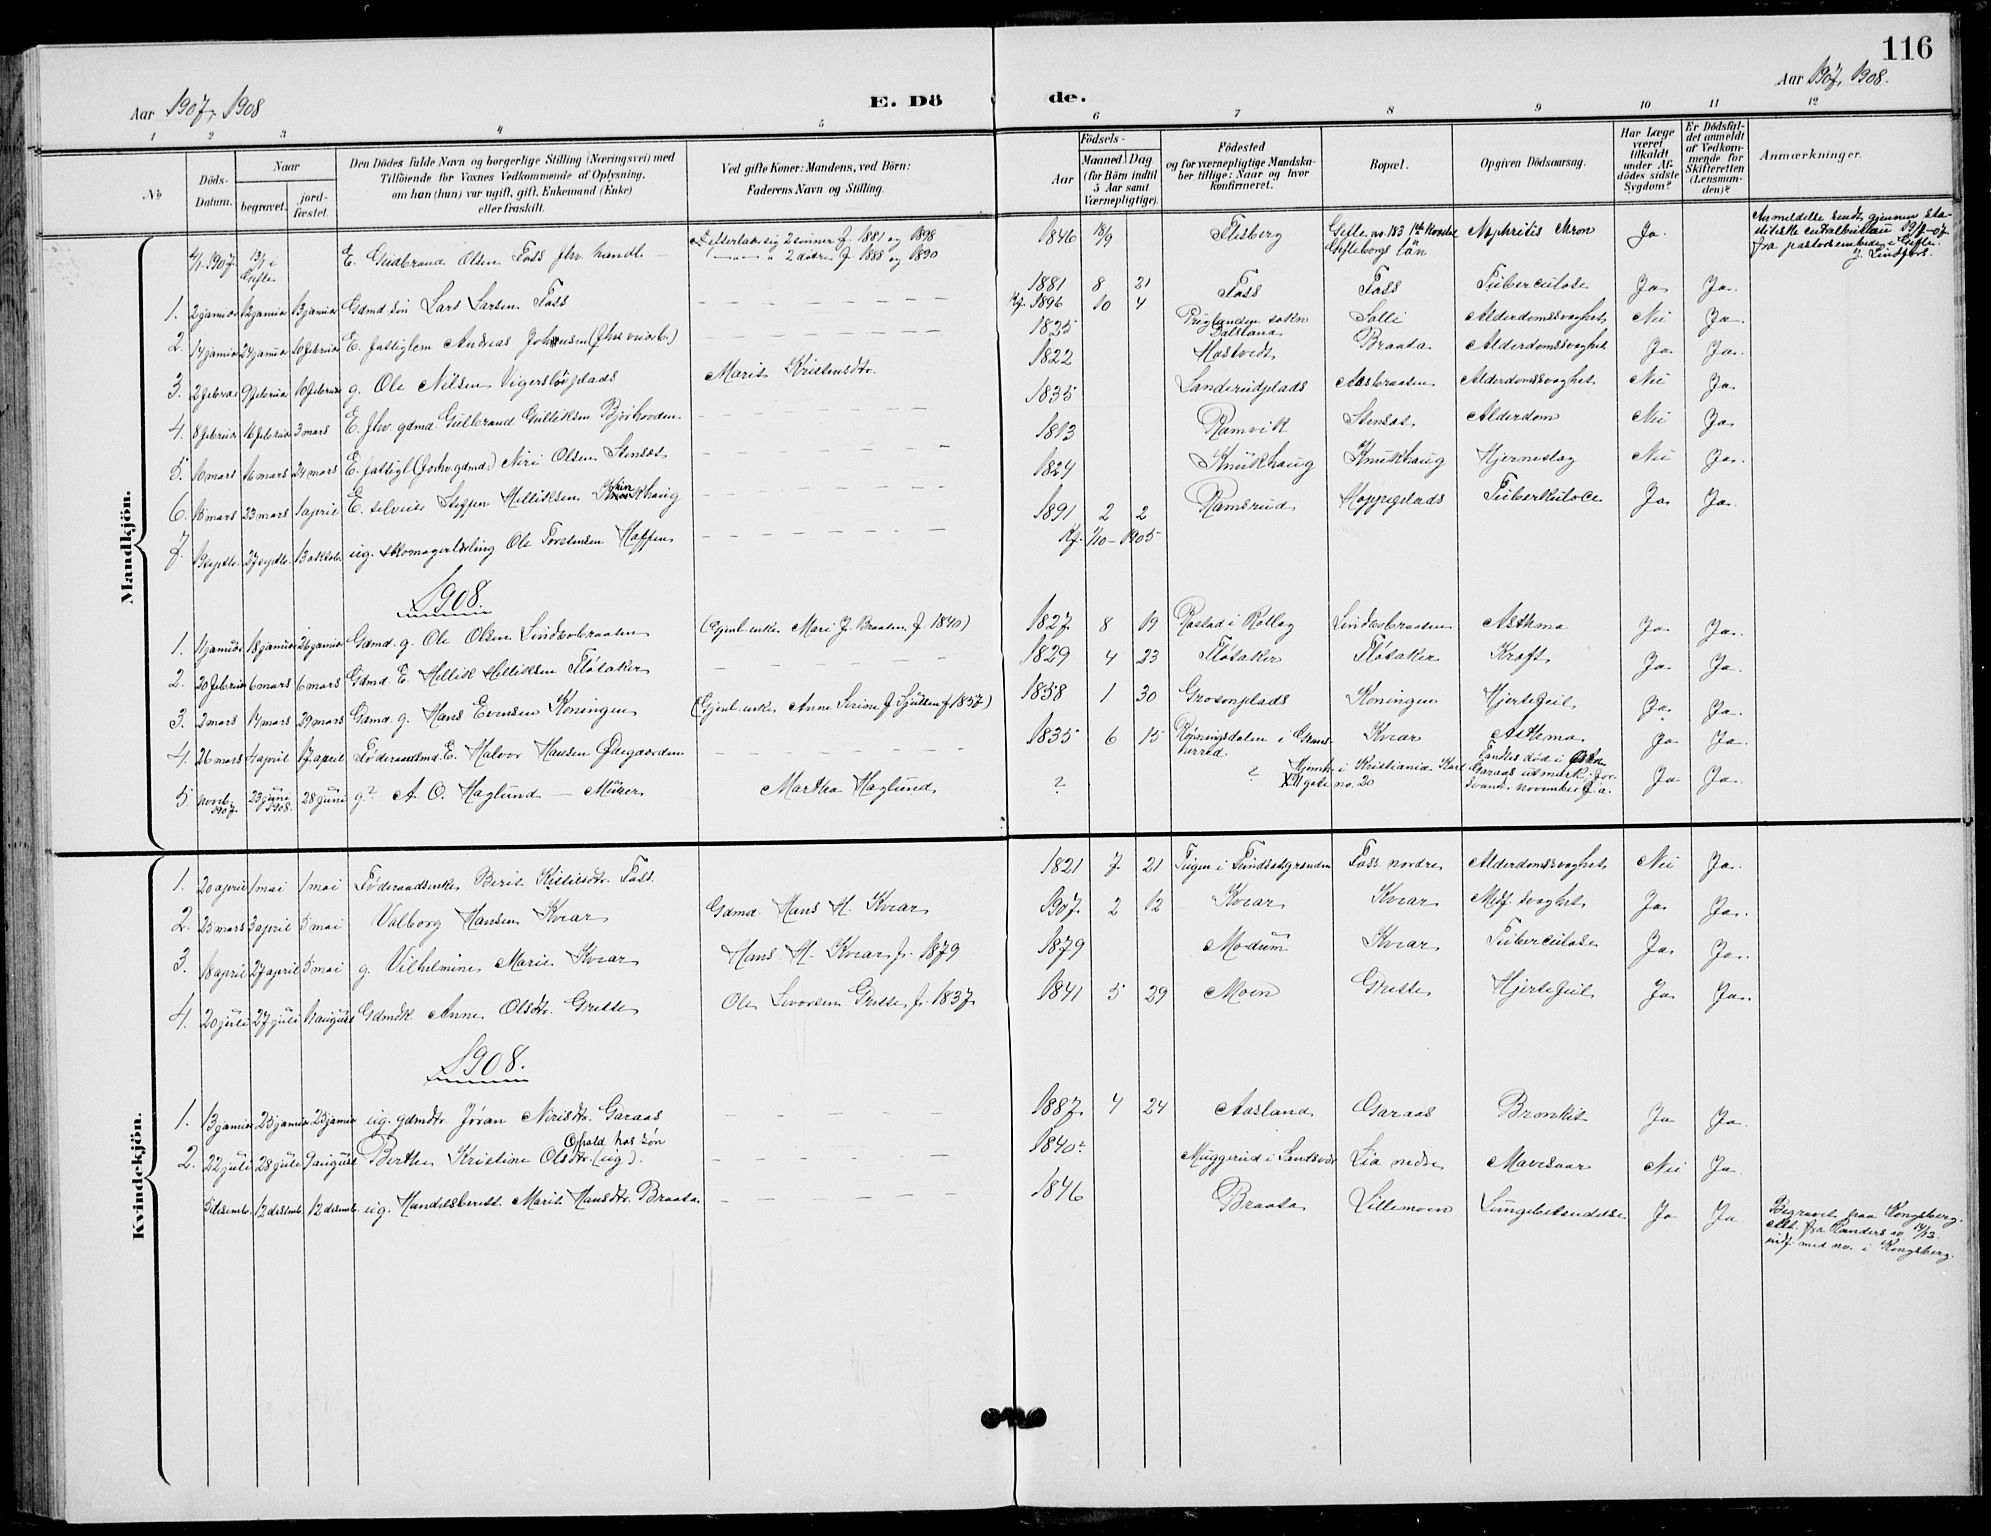 116
Aar 1907, 1908
E. Dö
de.
Aar 1907, 1908.
1 2 3 4 5 6 7 8 9 10 11 12
No
Döds-Datum.
Naar
begravet.
jordfæstet.
Den Dödes fulde Navn og borgerlige Stilling (Næringsvei) med
Tilföiende for Voxnes Vedkommende af Oplysning,
om han (hun) var ugift, gift, Enkemand (Enke)
eller fraskilt.
Ved gifte Koner: Mandens, ved Börn:
Faderens Navn og Stilling.
Födsels-
Aar
Maaned Dag
(for Børn indtil
5 Aar samt
Værnepligtige).
Födested
og for værnepligtige Mandska-
ber tillige: Naar og hvor
konfirmeret.
Bopæl.
Opgiven Dödsaarsag.
Har Læge
været
tilkaldt
under Af-
dödes sidste
Sygdom?
Er Dödsfal-
det anmeldt
af Vedkom-
mende for
Skifteretten
(Lensman-
den)?
Anmærkninger.
Mandkjön.
4/1 1907 13/1 i Gefle E. Gudbrand Olsen Foss fhv. handl. Efterlader sig 2 sönner f. 1881 og 1898 1846 18/9 Flesberg Gefle no. 183 1ste Kvarter Nephritis chron Ja. Anmeldelse sendt gjennem sta-
" — " 2 døtre f. 1888 og 1890 Gefleborgs län tistiske centralbureau 19/7-07
fra pastorsembedet i Gefle.
J. Lindfors.
1. 2 januar 12 januar 13 januar Gdmd sön Lars Larsen Foss — — — 1881 8 21 Foss Foss Tuberculose Ja Ja.
Kf. 1896 10 4
2. 14 januar 24 januar 10 februar E. fattiglem Andreas Johnsen (fhv veiarb.) — — — 1825 sokn Dalsland Solli Alderdomssvaghet Nei Ja
3. 2 februar 9 februar 10 februar g. Ole Nilsen Vigerslösplads Marit Kristensdtr. 1822 Hostvedt Braata Alderdomssvaghet Ja Ja.
4. 8 februar 16 februar 3 mars E. fhv. gdmd. Gulbrand Gulliksen Björhovden — — — 1835 Landerudplads Aasbraaten Alderdomssvaghet Nei Ja
5. 10 mars 16 mars 24 mars E. fattigl (forhv. gdmd.) Niri Olsen Stensæt — — — 1813 Ramvik Stensæt Alderdom Nei Ja
6. 18 mars 23 mars 1 april E. selveier Steffen Helliksen Knukhaug — — — 1824 Knukhaug Knukhaug Hjerneslag Nei Ja.
7. 19 septbr. 27 septbr. 13 oktob. ug. skomagerlærling Ole Torstensen Hoffen — — — 1891 2 2 Ramsrud Hoppeplads Tuberkulose Ja Ja.
Kf. 1/10 - 1905
1908.
1. 11 januar 18 januar 26 januar Gdmd. g. Ole Olsen Linderbraaten (Gjenl. enke Mari J. Braaten f. 1840) 1827 8 19 Rostad i Rollag Linderbraaten Asthma Ja Ja.
2. 20 februar 6 mars 6 mars Gdmd E. Hellik Helliksen Flötaker — — — 1829 4 23 Flötaker Flötaker Kræft Ja Ja.
3. 2 mars 14 mars 29 mars Gdmd. g. Hans Evensen Koningen (Gjenl. enke Anne Serine J. f 1857) 1858 1 30 Grosenplads Koningen Hjertefeil Ja Ja.
4. 26 mars 4 april 17 april Föderaadsmd. E. Halvor Hansen Övegaarden — — — 1835 6 15 Rönningsdalen i Grans- Kviar Asthma Ja Ja.
herred.
5. novbr. 1907. 23 juni 1908. 28 juni g? A. O. Haglund — Murer Martha Haglund ? ? Hjemh. i Kristiania Karl Fundet död i
XII gate no. 20 Garaas utmark, for-
svandt november f. a. Ja Ja.
Kvindekjön.
1. 20 april 1 mai 1 mai Föderaadsenke Berit Kittilsdtr. Foss. 1821 7 21 Tugen i Tundsetgrenden Foss nordre Alderdomssvaghet Nei Ja.
2. 25 mars 3 april 5 mai Valborg Hansen Kviar Gdmd. Hans H. Kviar 1907. 2 12 Kviar Kviar Medf. svaghet Ja Ja.
3. 18 april 27 april 5 mai g. Vilhelmine Marie Kviar Hans H. Kviar f. 1879 1879 Modum Kviar Tuberculose Ja Ja.
4. 20 juli 27 juli 11 august Gdmdk Anne Olsdtr. Grette Ole Sevorsen Grette f. 1837 1841 5 29 Moen Grette Hjertefeil Ja Ja.
1908.
1. 13 januar 25 januar 25 januar ug. gdmdtr Jöran Nirisdtr. Garaas — — — 1887 4 24 Aasland Garaas Bronkit Ja Ja.
2. 22 juli 28 juli 9 august Berthe Kristine Olsdtr. (ug). Ophold hos sön — — — 1840? Muggerud i Sandsvær Lia nedre Mavesaar Nei Ja
5 desemb. 12 desemb. 12 desemb. ug. Handelsbetj. Marit Hansdtr. Braata — — — 1846 Braata Lillemoen Lungebetændelse Ja Ja Begravet paa Kongsberg.
Att. fra Randers av 14/12.
indf. med no. i Kongsberg.